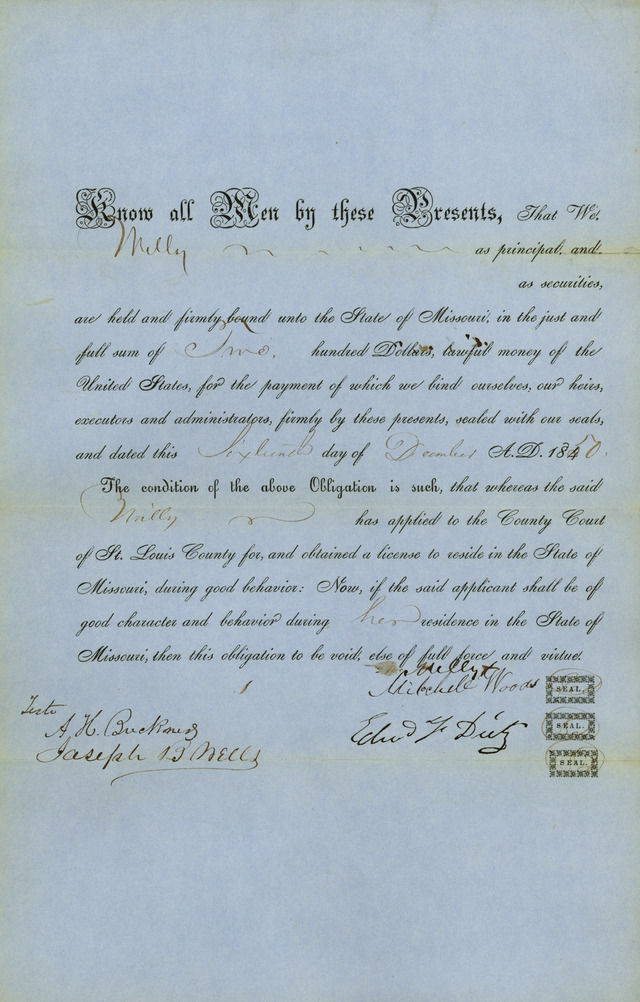 Know all Men by these Presents, That We,
Milly as principal, and
as securities,
are held and firmly bound unto the State of Missouri, in the just and
full sum of Two hundred Dollars, lawful money of the
United States, for the payment of which we bind ourselves, our heirs,
executors and administrators, firmly by these presents, sealed with our seals,
and dated this Sixteenth day of December A.D. 1850.
The condition of the above Obligation is such, that whereas the said
Milly has applied to the County Court
of St. Louis County for, and obtained a license to reside in the State of
Missouri, during good behavior: Now, if the said applicant shall be of
good character and behavior during her residence in the State of
Missouri, then this obligation to be void, else of full force and virtue.
Milly x
Mitchell Woods SEAL.
Teste
A. H. Buckner
Edwd F Dietz SEAL.
Joseph B Wells
SEAL.